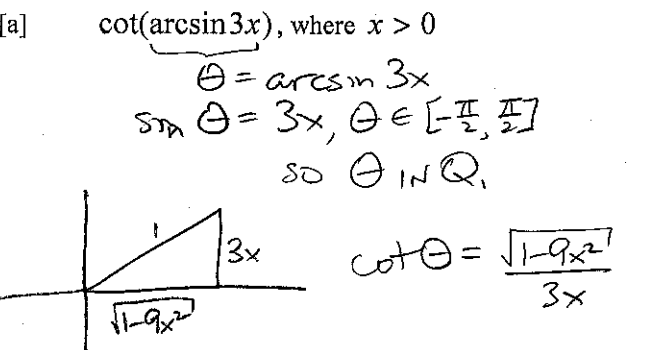 [a] cot(arcsin3x), where x > 0
θ = arcsin 3x
sin θ = 3x, θ ∈ [-π/2, π/2]
so θ IN Q₁
1
3x
√(1-9x²)
cot θ = √(1-9x²) / 3x